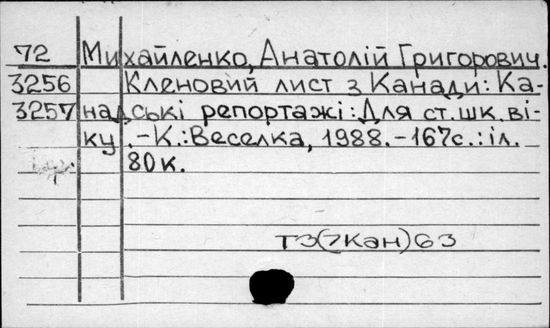 72 Михайленко, Анатолій Григорович.
3256 Кленовий лист з Канади: Ка-
3257 надські репортажі: Для ст. шк. ві-
ку. - К.: Веселка, 1988. - 167с.: іл.
80к.
Т3(7Кан)63